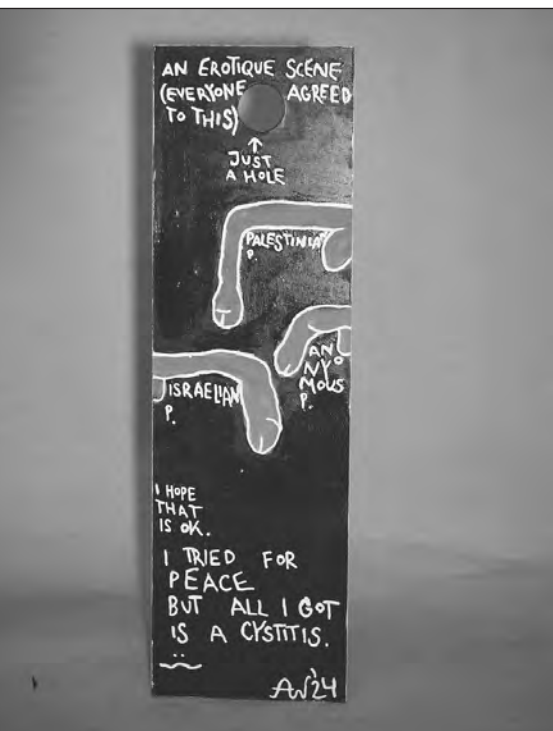 AN EROTIQUE SCENE
(EVERYONE AGREED
TO THIS)
↑
JUST
A HOLE
PALESTINIAN
P.
AN
NYO
MOUS
P.
ISRAELIAN
P.
I HOPE
THAT
IS OK.
I TRIED FOR
PEACE
BUT ALL I GOT
IS A CYSTITIS.
AW'24